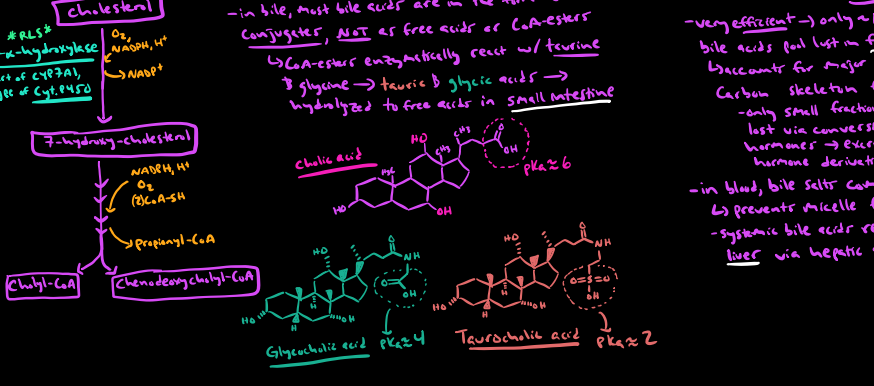 cholesterol
*RLS*
O₂,
NADPH, H⁺
-α-hydroxylase
NADP⁺
of CYP7A1,
of Cyt.P450
7-hydroxy-cholesterol
NADPH, H⁺
O₂
(2)CoA-SH
Propionyl-CoA
Cholyl-CoA
Chenodeoxycholyl-CoA
-in bile, most bile acids are in the
conjugates, NOT as free acids or CoA-esters
↳CoA-esters enzymatically react w/ taurine
& glycine → tauric & glycic acids →
hydrolyzed to free acids in small intestine
cholic acid
HO
CH₃
CH₃
O
OH
H₃C
HO
OH
pKa≈6
HO
O
NH
O
OH
H
H
H
HO
OH
Glycocholic acid
pKa≈4
HO
O
NH
O=S=O
OH
H
H
H
HO
OH
Taurocholic acid
pKa≈2
-very efficient → only ~
bile acids pool lost in
↳accounts for major
Carbon skeleton
-only small fraction
lost via conversi
hormones → excr
hormone derivat
-in blood, bile salts
↳prevents micelle
-systemic bile acids
liver via hepatic